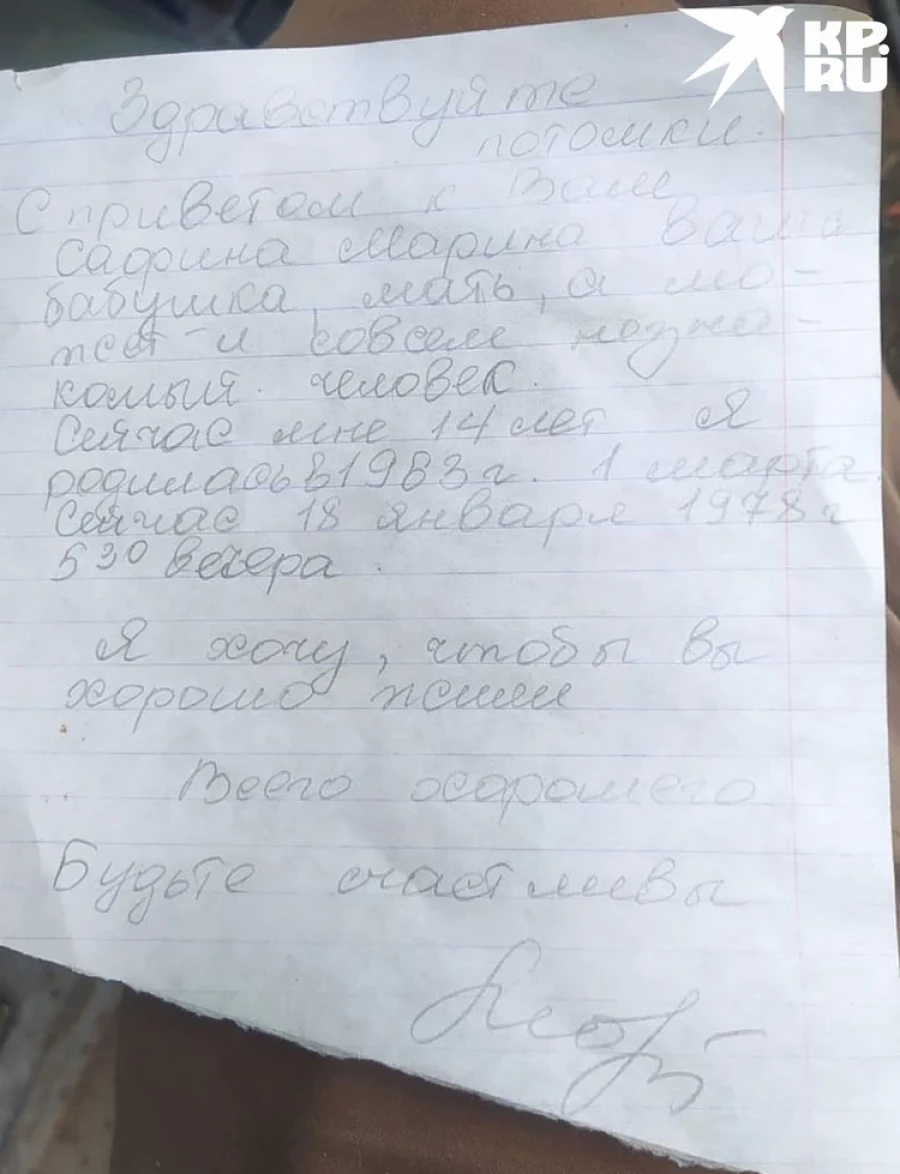 KP.
RU
Здравствуйте
потомки.
С приветом к Вам
Сафина Марина Ваша
бабушка, мать, а мо-
жет и совсем незна-
комый. человек.
Сейчас мне 14 лет Я
родилась в 1983 г. 1 марта.
Сейчас 18 января 1978 г
5 30 вечера.
Я хочу, чтобы вы
хорошо жили
Всего хорошего
Будьте счастливы